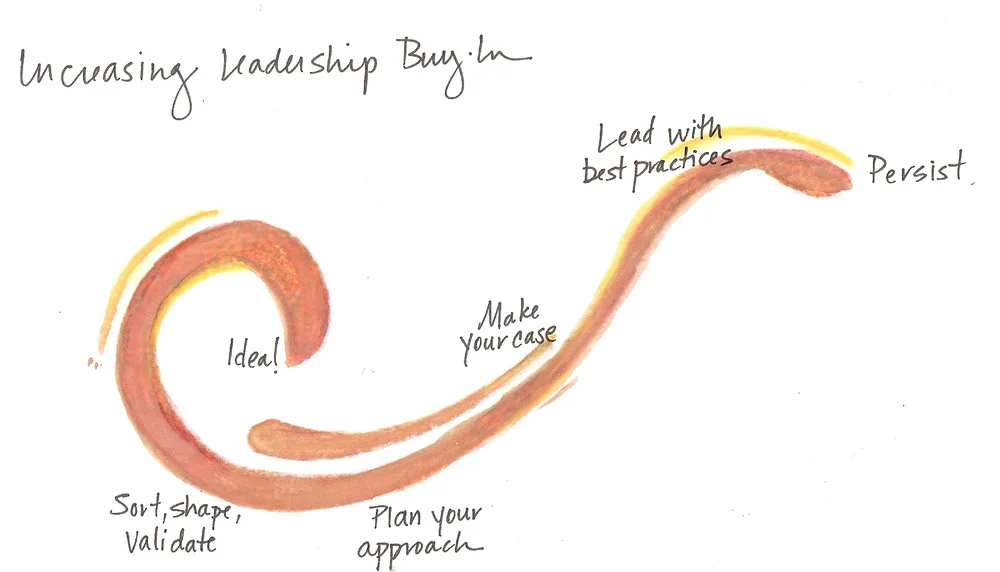 Increasing Leadership Buy-In
Idea!
Sort, shape,
Validate
Plan your
approach
Make
your case
Lead with
best practices
Persist.